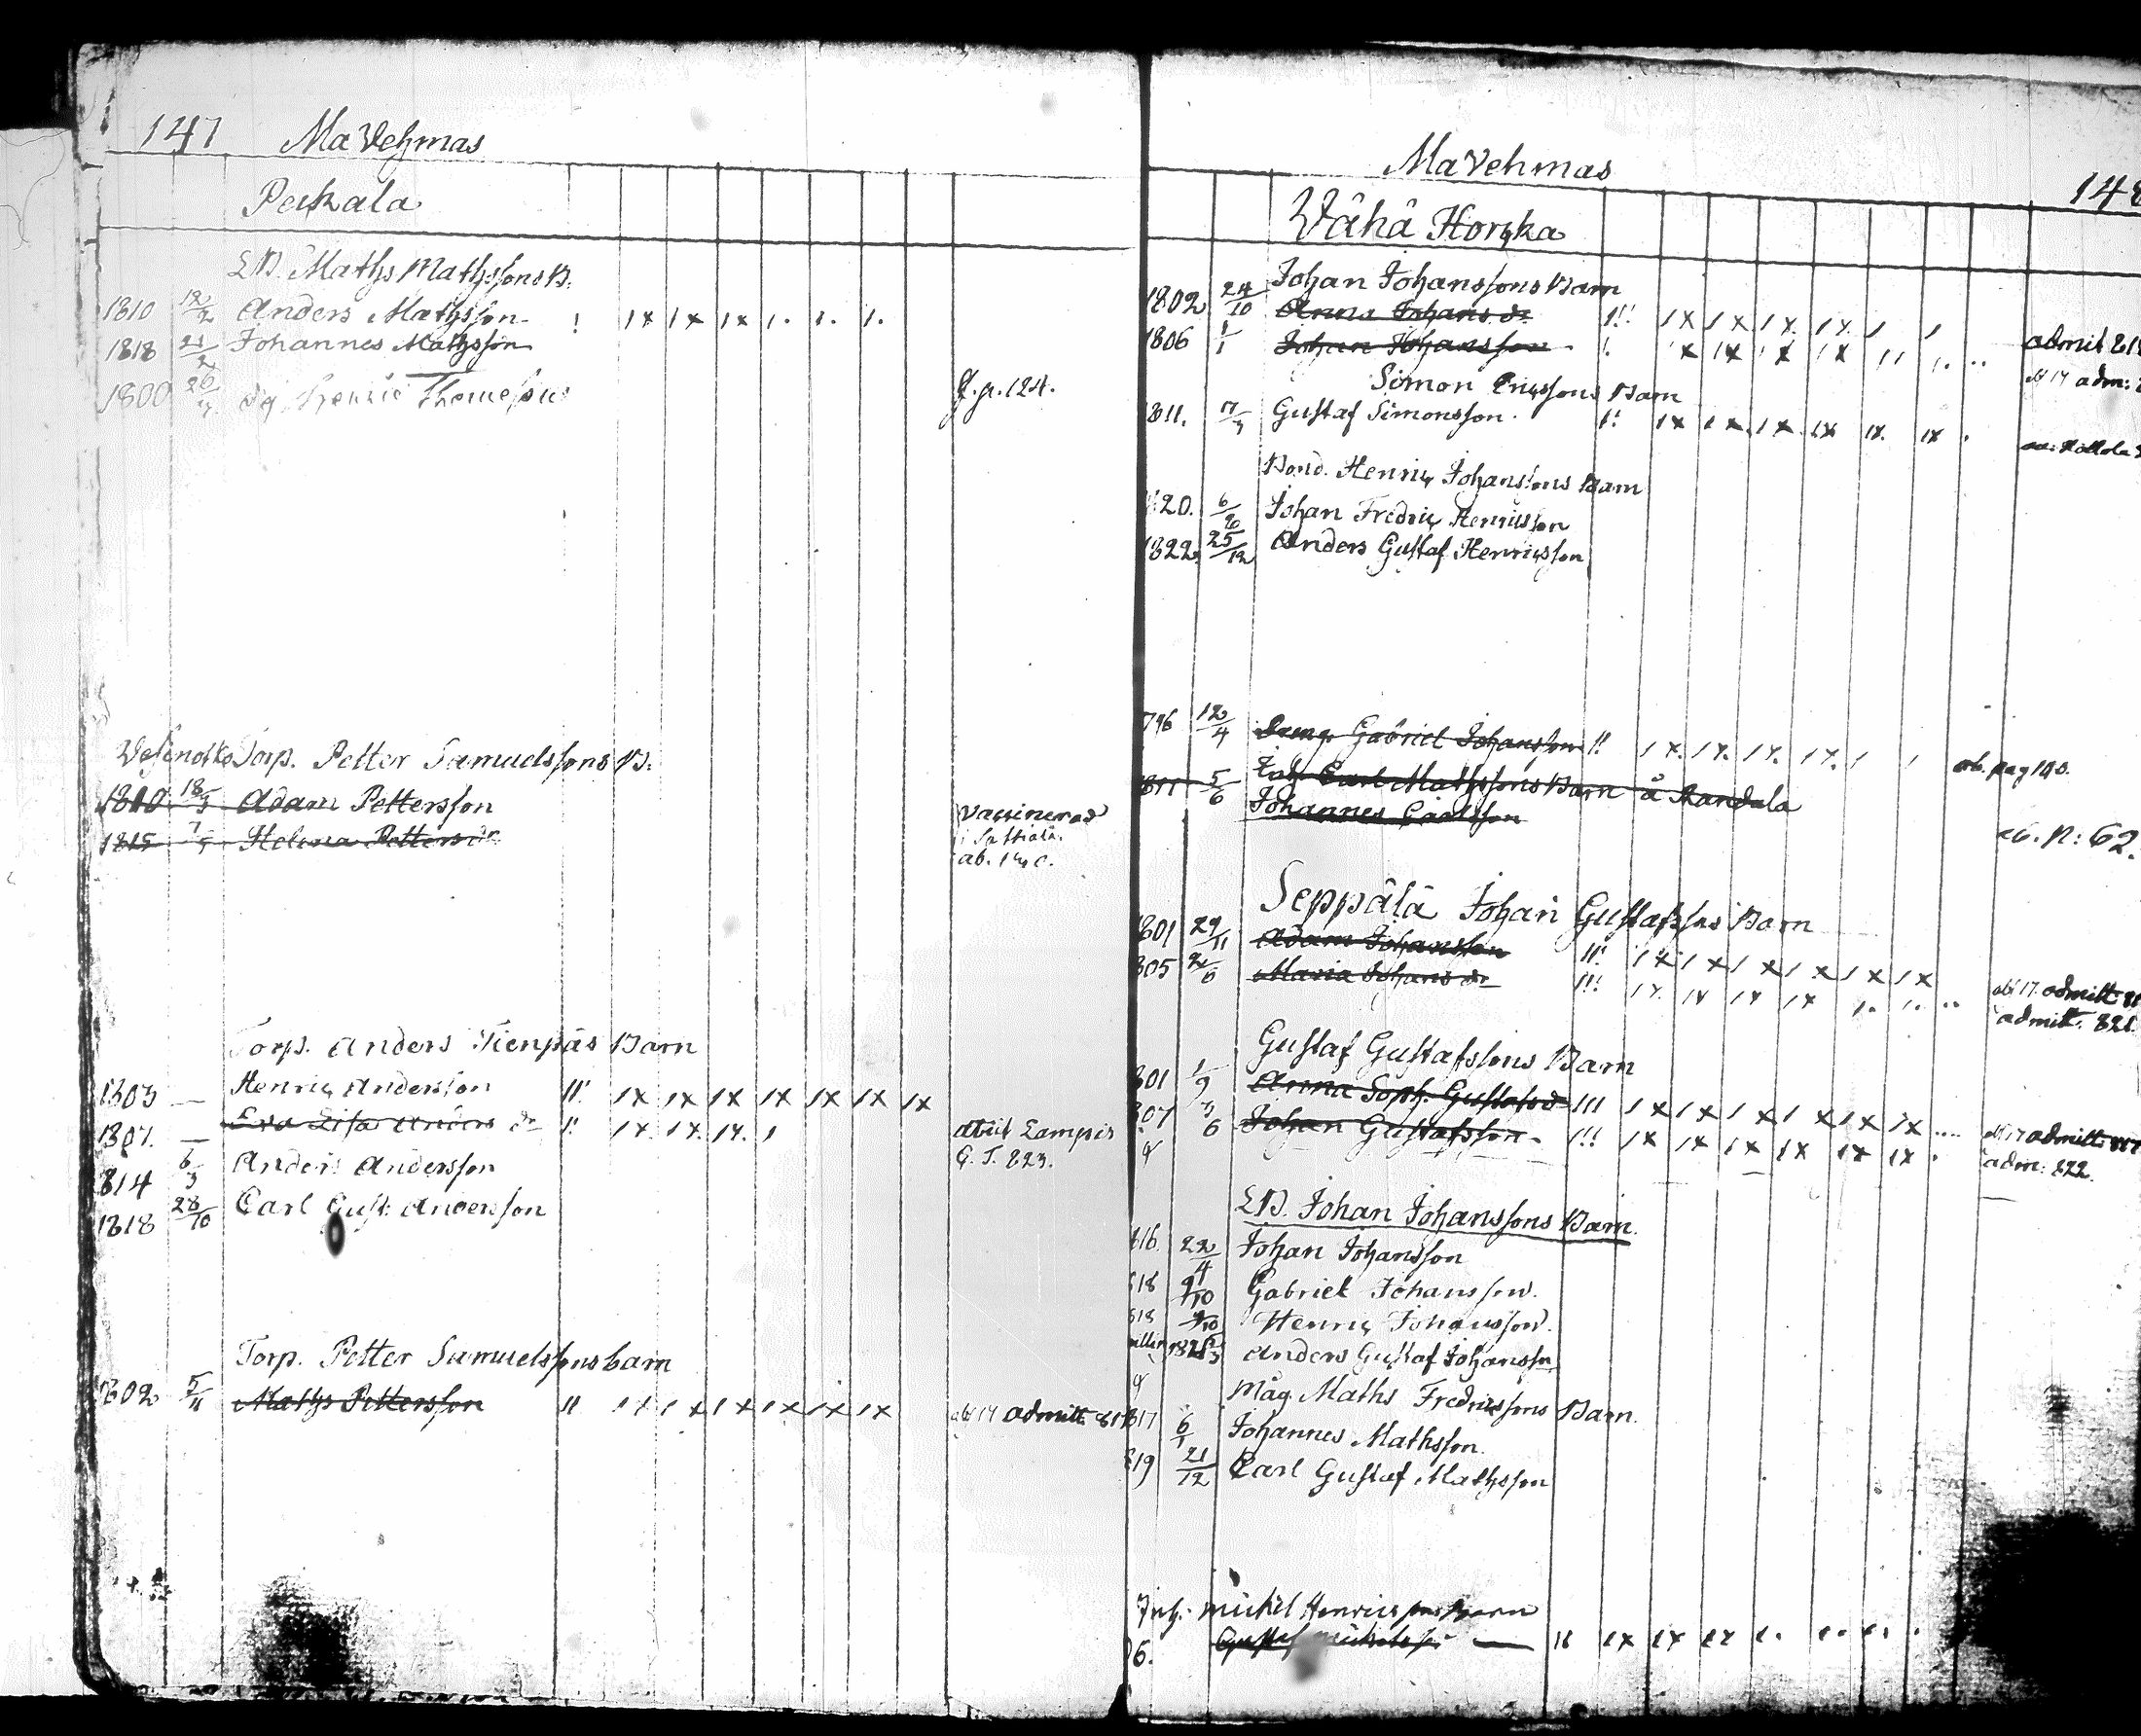 147 Ma Vehmas
Peckala
LB. Maths Mathssons B.
1810 12/2 Anders Mathsson ! 1x 1x 1x 1. 1. 1.
1818 21/2 Johannes Mathsson
1800 Henric Thomesson f. p. 124.
Torp. Petter Samuelssons B.
1810 18/9 Adam Pettersson Vaccinerad
1815 7/5 Helena Petters dr
ab. 140.
Torp. Anders Tienpäs Barn
1803 — Henric Andersson 11. 1x 1x 1x 1x 1x 1x 1x
1807. — Eva Lisa Anders dr 1! 1x. 1x. 1x. 1 abiit Lampis
G. T. 823.
814 6/3 Anders Andersson
1818 28/10 Carl Gust. Andersson
Torp. Petter Samuelssons barn
1802 5/11 Maths Pettersson 11 1x 1x 1x 1x 1x 1x admitt. 817
Ma Vehmas 148
Vähä Horkka
Johan Johanssons Barn
1802 24/10 Anna Johans dr 1!! 1x 1x 1x 1x. 1 1 admit 818
1806 1/1 Johan Johansson 1. 1x 1x 1x 1x 11 1. .. adm:
Simon Ericssons Barn
1811. 17/7 Gustaf Simonsson. 1! 1x 1x 1x 1x 1x. 1x .
Bond. Henric Johanssons Barn
820. 6/26 Johan Fredric Henricsson
1822. 25/12 Anders Gustaf Henricsson
796 12/4 Dreng Gabriel Johansson 1! 1x. 1x. 1x. 1x. 1 1 ab. pag 140.
Inh. Carl Mathssons Barn å Kandala
1811 5/6 Johannes Carlsson
ab. p: 62.
Seppälä Johan Gustafssons Barn
801 29/11 Adam Johansson 11! 1x 1x 1x 1x 1x 1x
805 2/6 Maria Johans dr 1!! 1x. 1x 1x 1x 1. 1. .. admitt.
admitt. 821.
Gustaf Gustafssons Barn
801 1/9 Anna Soph. Gustafs dr 111 1x 1x 1x 1x 1x 1x .... admitt.
807 3/6 Johan Gustafsson 1!! 1x 1x 1x 1x 1x 1x . adm: 822.
LB. Johan Johanssons Barn.
816. 22/4 Johan Johansson
818 9/10 Gabriel Johansson.
818 9/10 Henric Johansson.
Anders Gustaf Johansson
Måg Maths Fredricssons Barn.
817 6/1 Johannes Mathsson.
819 21/12 Carl Gustaf Mathsson
Inh. Michel Henricssons Barn
06. Gustaf Michelsson — 11 1x 1x 1x 1.